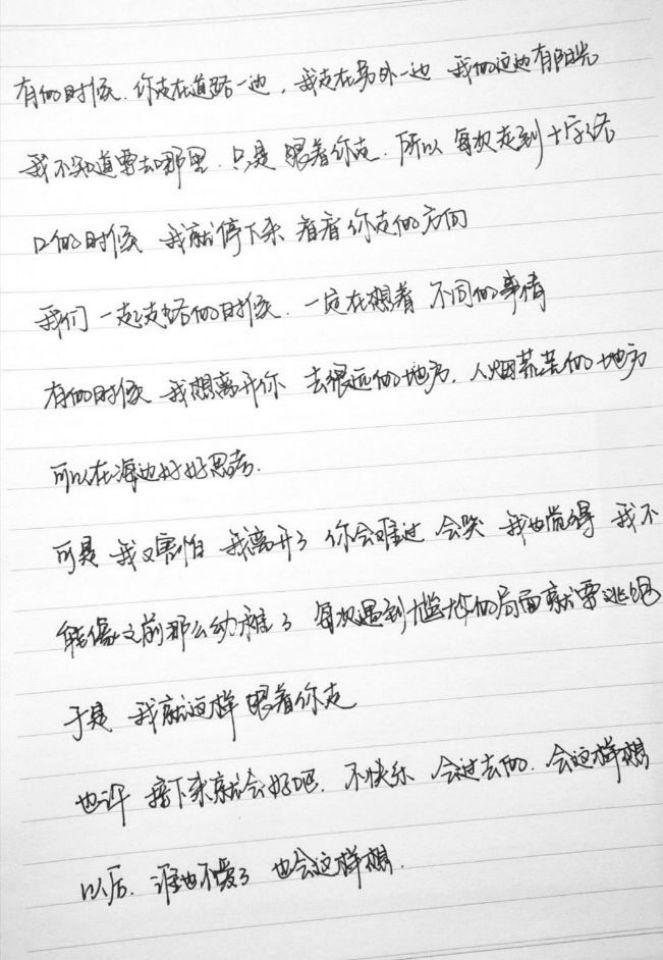 有的时候.你走在道路一边,我走在另外一边 我们这边有阳光
我不知道要去哪里.只是 跟着你走.所以 每次走到十字路
口的时候 我就停下来 看看你走的方向
我们 一起走路的时候.一定在想着 不同的事情
有的时候 我想离开你 去很远的地方.人烟荒芜的地方
可以在海边好好思考.
可是 我又害怕 我离开了 你会难过 会哭 我也觉得 我不
能像之前那么幼稚了 每次遇到尴尬的局面就要逃跑
于是 我就这样 跟着你走
也许 接下来就会好吧.不快乐 会过去的.会这样想
以后.谁也不爱了 也会这样想.